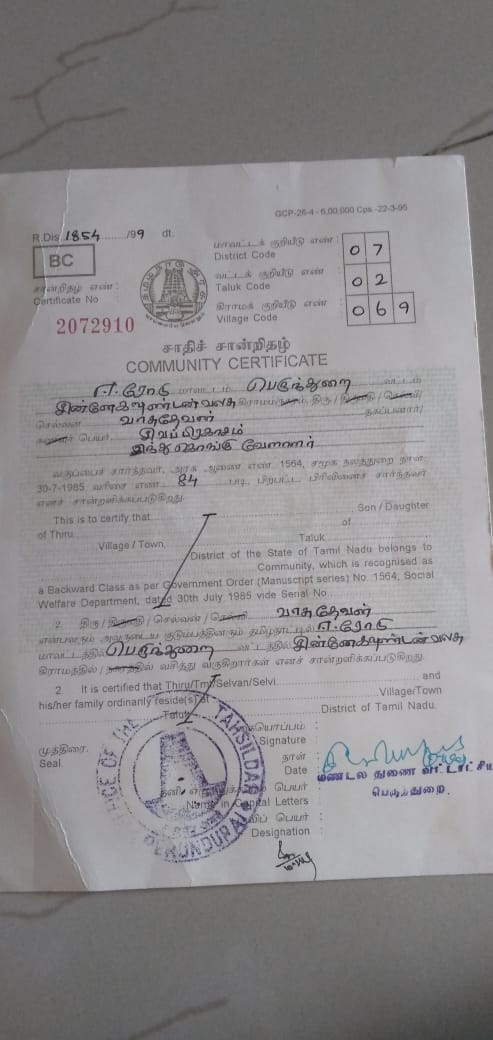 GCP-26-4 - 6,00,000 Cps -22-3-95
R.Dis. 1854 /99 dt.
BC
மாவட்டக் குறியீடு எண் :
District Code
0 7
வட்டக் குறியீடு எண் :
Taluk Code
0 2
கிராமக் குறியீடு எண்
Village Code
0 6 9
சான்றிதழ் எண் :
Certificate No
2072910
சாதிச் சான்றிதழ்
COMMUNITY CERTIFICATE
ஈ.ரோடு மாவட்டம் பெருந்துறை வட்டம்
கிராமம் திரு
செல்வன் வாசுதேவன் தகப்பனார்
பெயர் சிவப்பிரகாசம்
இந்து கொங்கு வேளாளர்
வகுப்பைச் சார்ந்தவர், அரசு ஆணை எண் 1564, சமூக நலத்துறை நாள்
30-7-1985 வரிசை எண் 84 படி, பிற்பட்ட பிரிவினைச் சார்ந்தவர்
எனச் சான்றளிக்கப்படுகிறது.
This is to certify that Son / Daughter
of Thiru of
Village / Town, Taluk
District of the State of Tamil Nadu belongs to
Community, which is recognised as
a Backward Class as per Government Order (Manuscript series) No. 1564, Social
Welfare Department, dated 30th July 1985 vide Serial No.
2. திரு / செல்வன் / வாசுதேவன்
என்பவரும் அவருடைய குடும்பத்தினரும் தமிழ்நாட்டில் ஈ.ரோடு
மாவட்டத்தில் பெருந்துறை வட்டத்தில்
கிராமத்தில் / வசித்து வருகிறார்கள் எனச் சான்றளிக்கப்படுகிறது.
2. It is certified that Thiru/Tmy/Selvan/Selvi. and
his/her family ordinarily reside(s) at Village/Town
Taluk District of Tamil Nadu.
கையொப்பம் :
Signature
முத்திரை.
Seal.
நாள் :
Date
மண்டல துணை வட்டாட்சியர்
பெருந்துறை.
பெயர் :
Name in Capital Letters
பெயர் :
Designation
OFFICE OF THE TAHSILDAR
PERUNDURAI